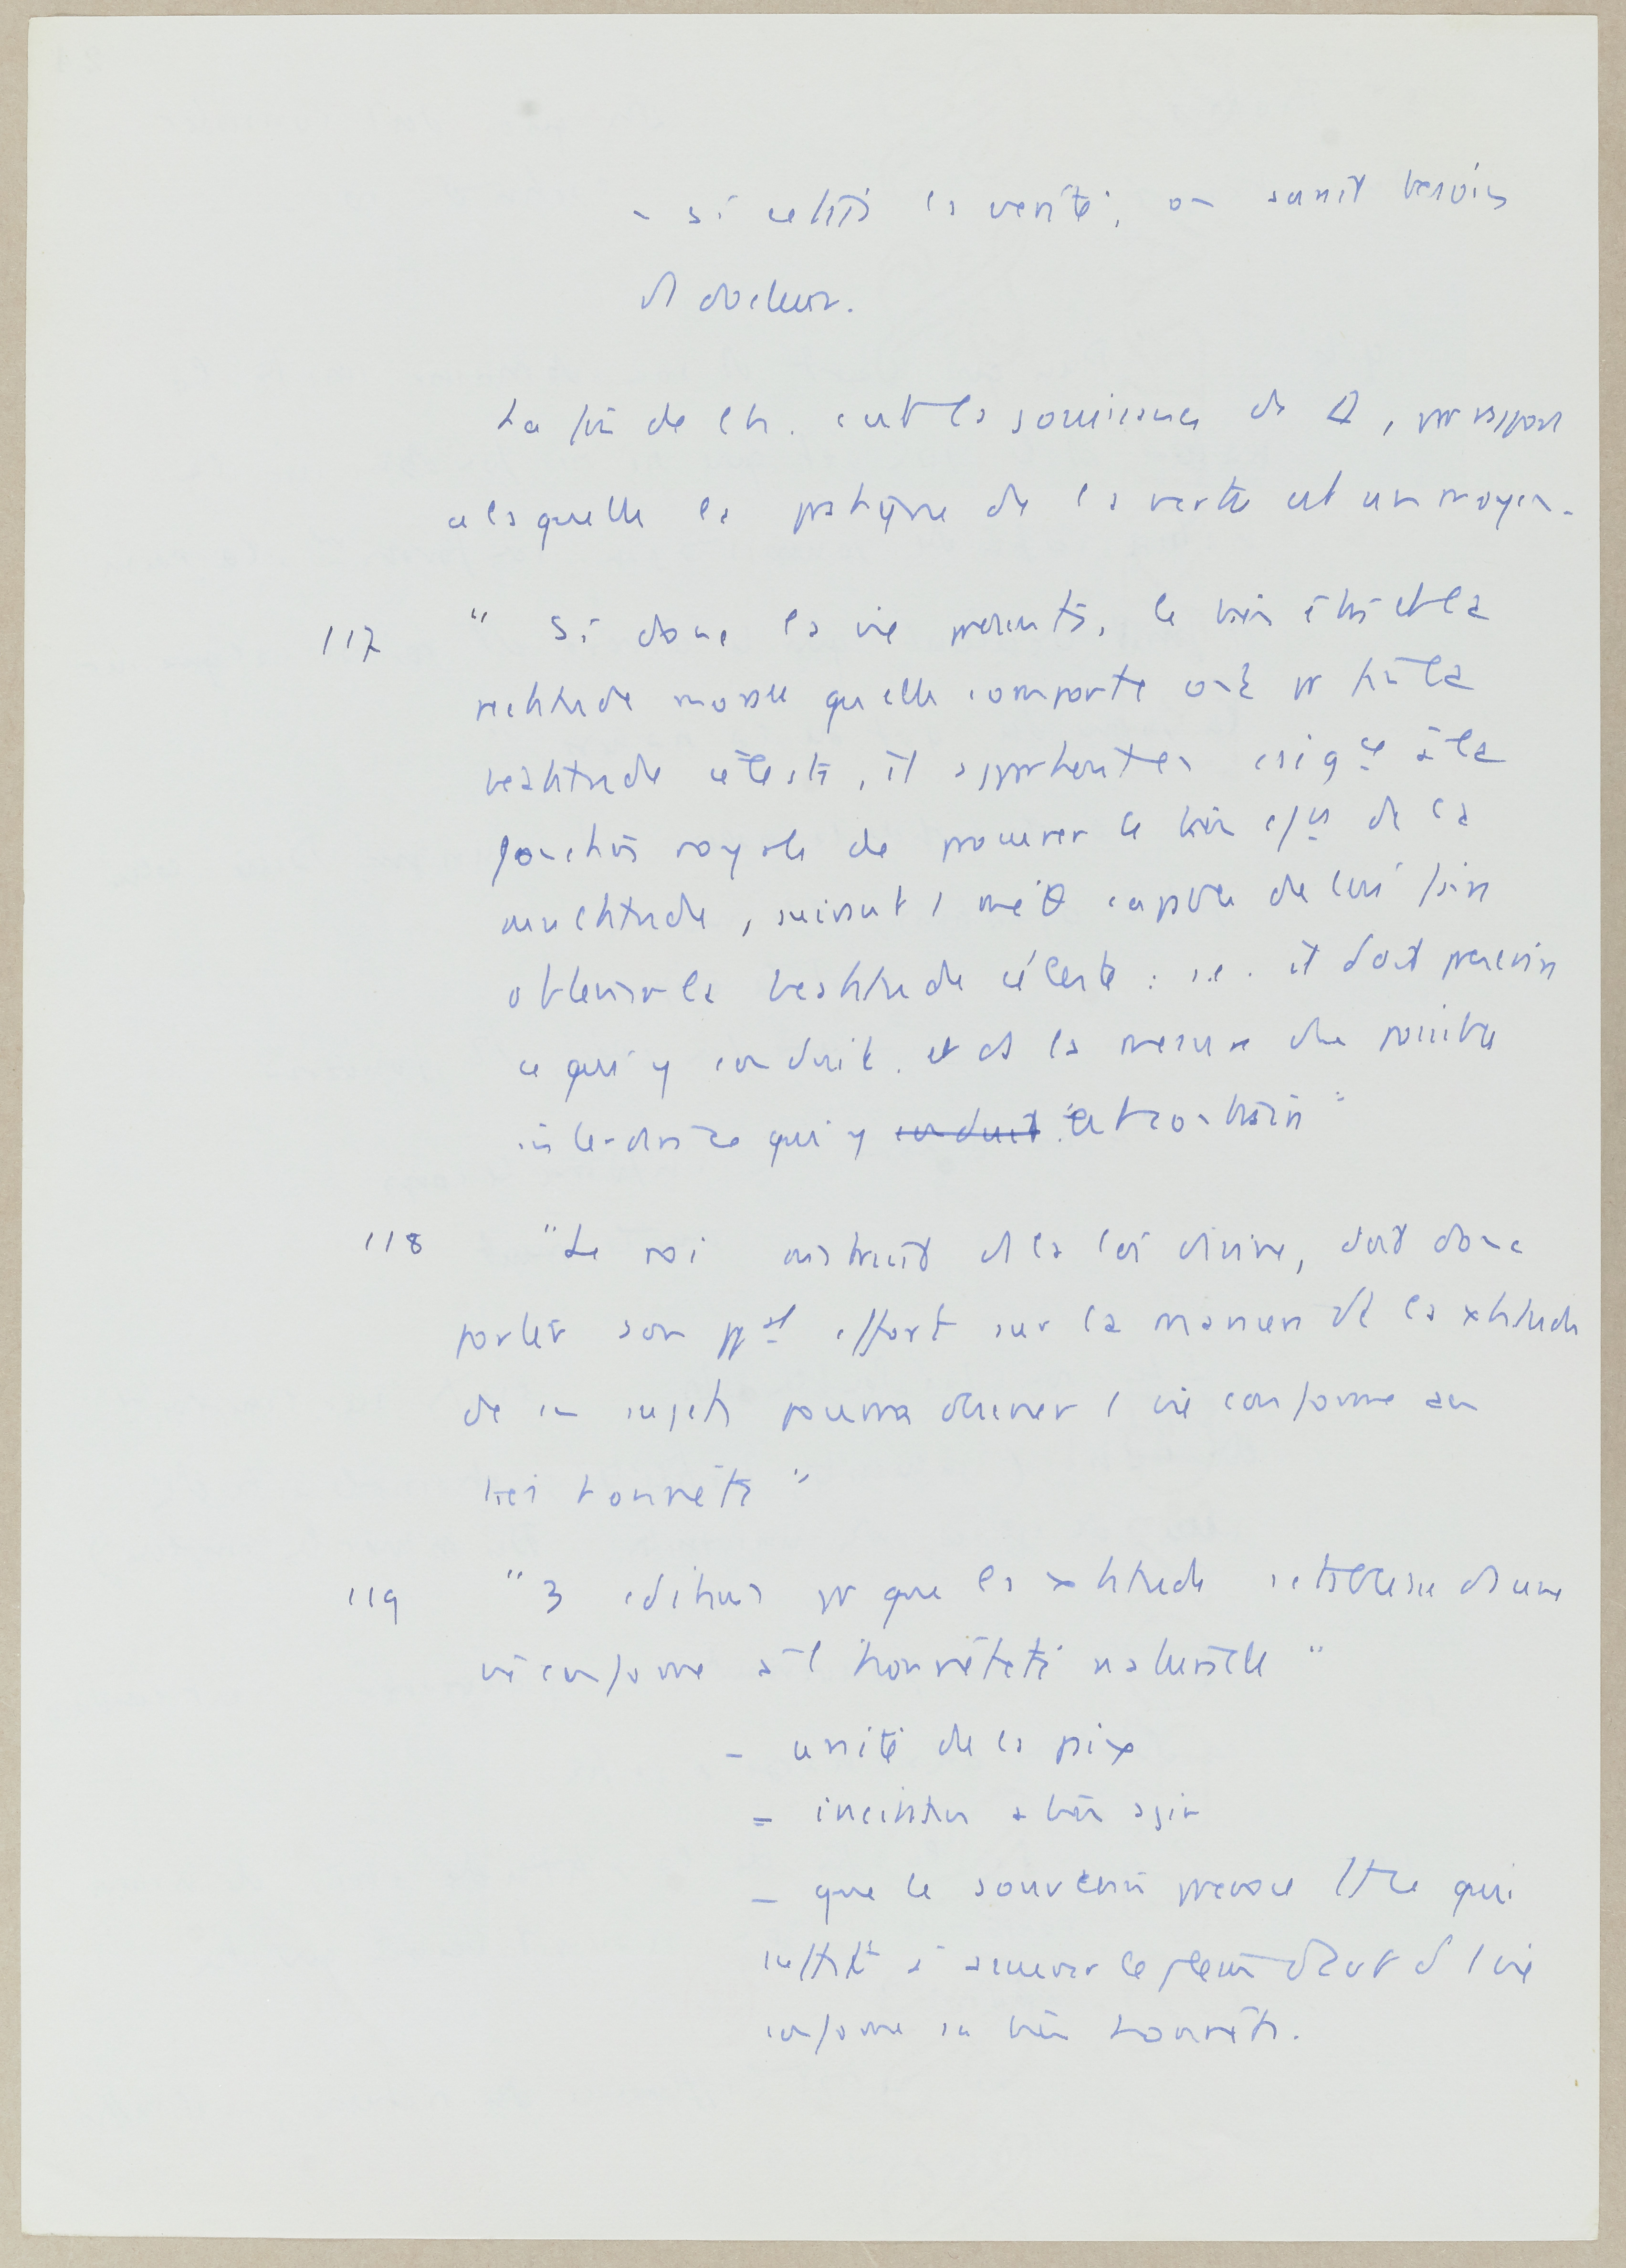 - si c'était la vérité, on aurait besoin
d docteur.
La fin de l'h. c'est la jouissance de Δ, par rapport
à laquelle la pratique de la vertu est un moyen.
117 " Si donc la vie présente, le bien être et la
rectitude morale qu'elle comporte ont pr fin la
béatitude céleste, il appartient en csqce à la
fonction royale de procurer le bien de la
multitude, suivant 1 capable de lui faire
obtenir la béatitude céleste : i.e. il doit prescrire
ce qui y conduit. et ds la mesure du possible
interdire ce qui y conduit. "est contraire"
118 "Le roi instruit ds la loi divine, doit donc
porter son ppal effort sur la manière dt la xtitude
de ses sujets pourra mener 1 vie conforme au
bien honnête "
119 "3 cditions pr que la xtitude s'établisse ds une
vie conforme à l'honnêteté naturelle "
- unité de la paix
= incitation à bien agir
- que le souverain prévoie tt ce qui
suffit à assurer le plein état d 1 vie
conforme au bien honnête.